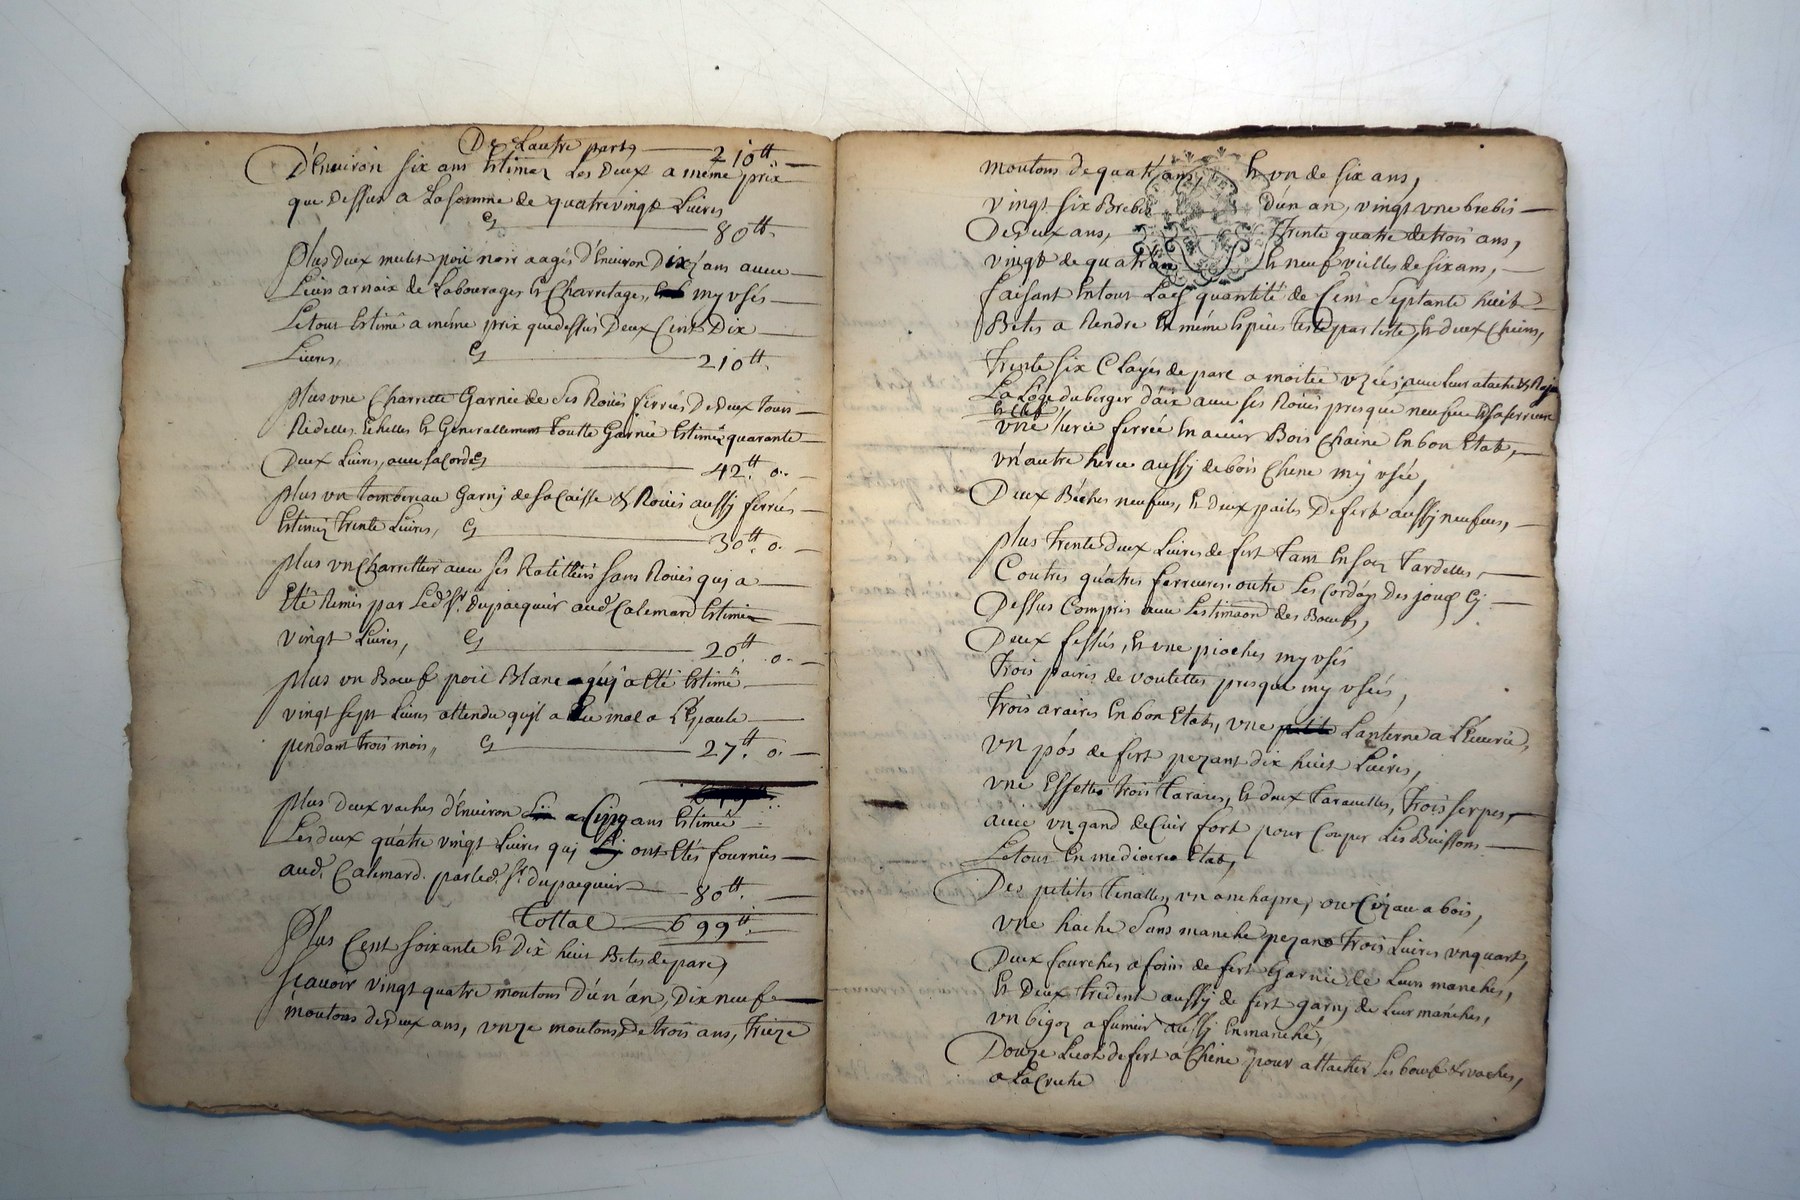 De Lautre part 210tt
D'Environ six ans Estimez Les Deux a même prix
que dessus a La somme de quatrevingt Livres
Cy 80tt
plus Deux mulet poil noir aagés d'Environ Dix ans avec
Leurs arnaix de Labourages Et Charretages, my usés
Le tout Estimé a même prix que dessus Deux Cent Dix
Livres, Cy 210tt.
plus une Charrette Garnie de Ses Roües ferrées De Deux tours
Ridelles Echelles Et Generallement Toutte Garnie Estimée quarante
Deux Livres, avec sa corde Cy 42tt. o.
plus un tombereau Garny de sa Caisse & Roües aussy ferrées
Estimez trente Livres, Cy 30tt. o.
plus un Charretter avec ses Ratilliers sans Roües quj a
Eté Remis par Led. Sr. dupacquier aud. Calemard Estimé
vingt Livres, Cy 20tt. o.
plus un Boeuf poil Blanc quj a Eté Estimé
vingt sept Livres attendu qu'jl a Eu mal a L'Epaule
pendant trois mois, Cy 27tt. o.
plus Deux vaches d'Environ Cinq ans Estimée
Les deux quatre vingt Livres quj ont Etés fournies
aud. Calemard. par led. Sr. dupacquier 80tt.
Tottal 699tt.
Plus Cent soixante Et Dix huit Betes de parc,
sçavoir vingt quatre moutons D'un an, Dix neuf
moutons de Deux ans, unze moutons De trois ans, Treize
moutons de quatre ans, Et un de six ans,
vingt six Brebis d'un an, vingt une brebis
De Deux ans, Trente quatre de trois ans,
vingt de quatre ans Et neuf vieilles de six ans,
faisant En tout La quantité de Cent Septante huit
Betes a Rendre En même Espece teste par teste, Et deux Chiens,
Trente six Clayes de parc a moitée uzées, avec leur atache
La Loge du berger d'aix avec ses Roües presque neufve Et sa serrure
Et Clef
une herce ferrée En acier Bois Chaine En bon Etat,
un autre herce aussy de bois Chene my usée,
Deux Béches neufves, Et deux pailes De fert aussy neufves,
plus Trente deux Livres de fert Tant En Tardelles,
Coutres quatres ferrures outre Les Cordages des joug Cy
Dessus Compris avec L'estimaon des Boeufs,
Deux fessus, Et une pioches my usés
Trois paires de voulettes presque my usées,
Trois araires En bon Etat, une Lanterne a L'Ecurie,
un pos de fert pezant dix huit Livres,
une Essette trois Taraires, Et deux Taravelles, Trois serpes,
avec un gand de Cuir fort pour Couper Les Buissons
Le tout En mediocre Etat,
Des petites Tenalles, un anchapre, ou Cizau a bois,
une hache Sans manche pezant Trois Livres un quart,
Deux fourches a foin de fert Garnie de Leurs manches,
Et Deux Trident aussy de fert garny de Leur manches,
un bigoz a fumier aussy Enmanché,
Douze Liot de fert a Chene pour attacher Les boeuf & vaches,
a La Creche